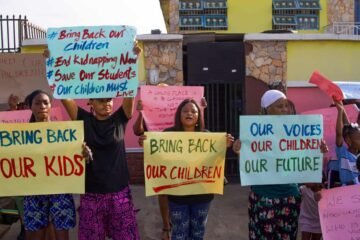 #Bring Back Our
Children
#End Kidnapping
Now
#Save Our Students
#Our Children Must
Live
BRING BACK
OUR KIDS
BRING BACK
OUR CHILDREN
OUR VOICES
OUR CHILDREN
OUR FUTURE